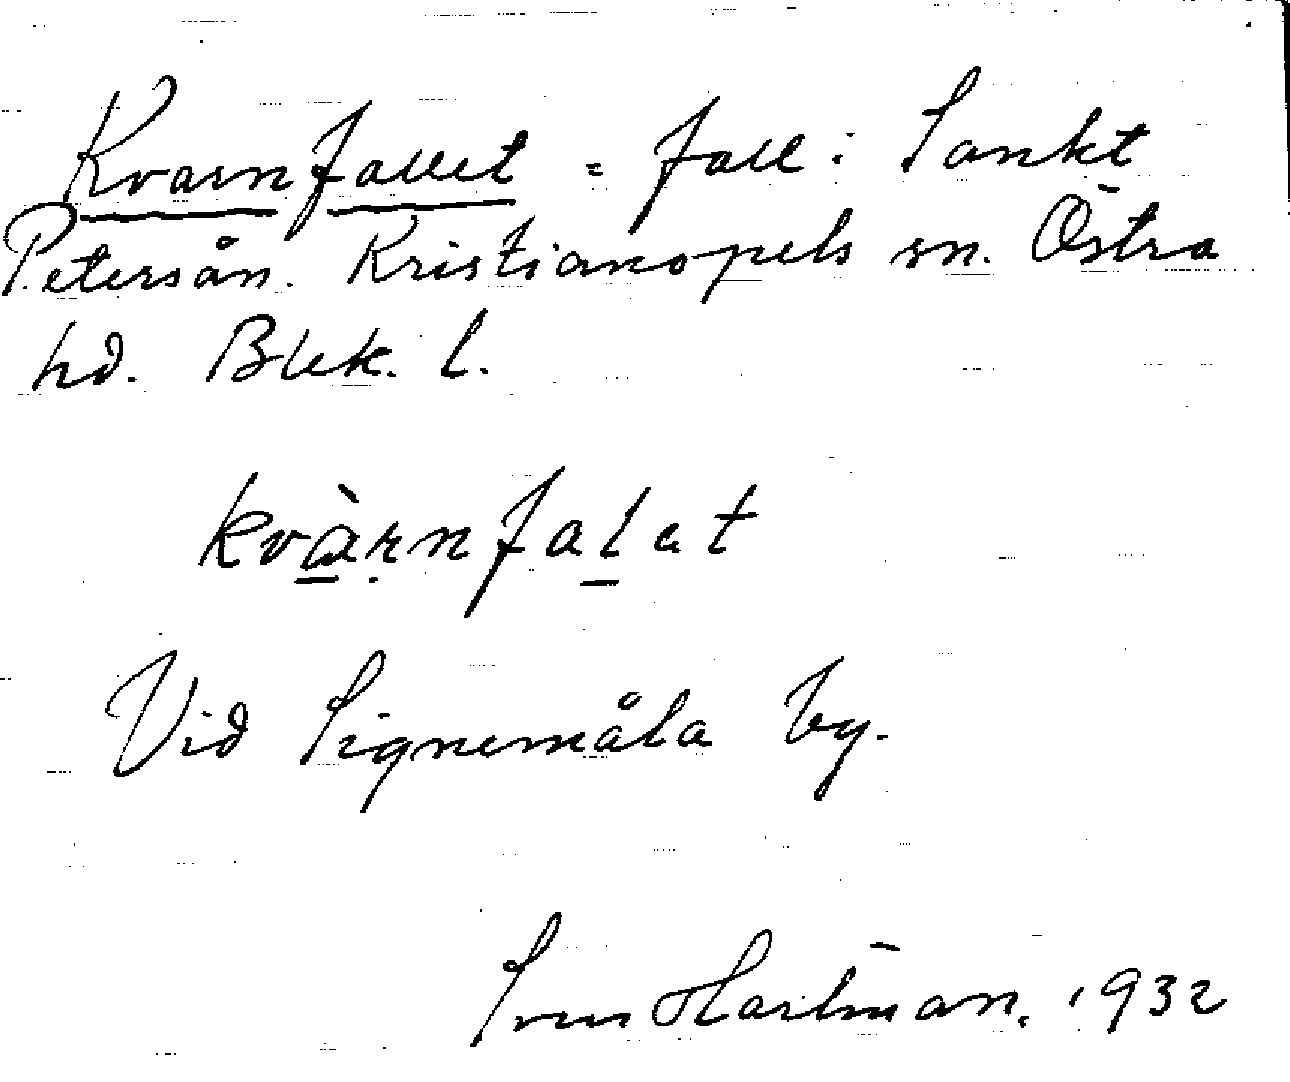 Kvarnfallet = fall i Sankt
Petersån. Kristianopels sn. Östra
hd. Blek. l.
kvàrnfalet
Vid Signemåla by.
Sven Hartman. 1932